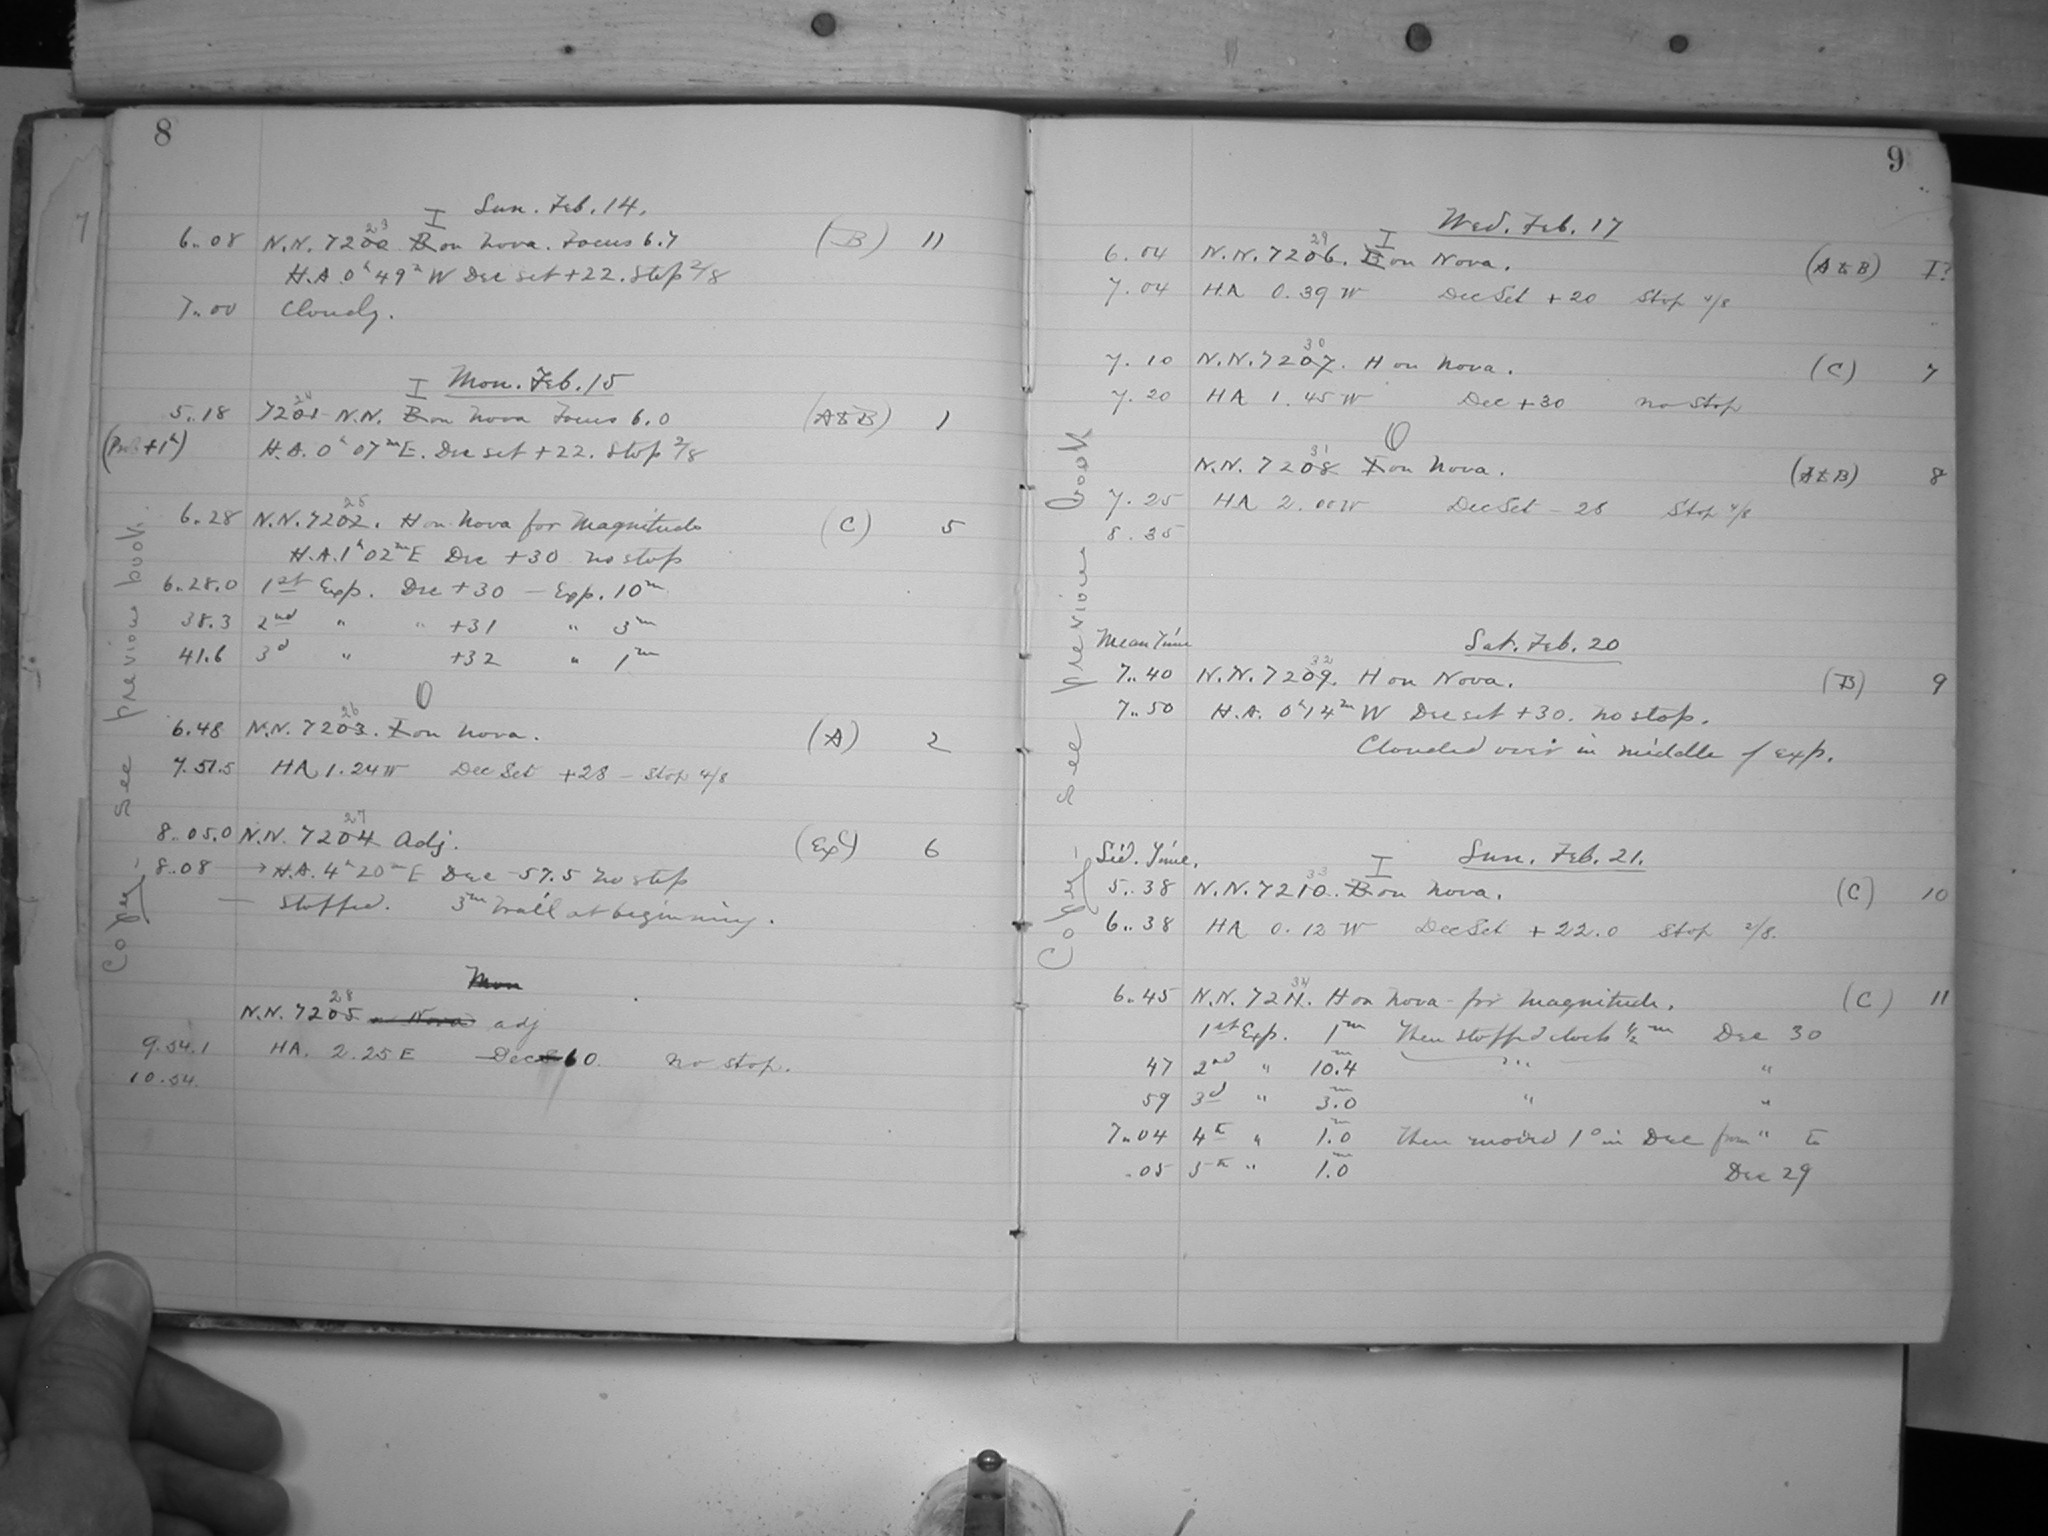 8
Sun. Feb. 14.
I
23
6..08 N.N. 7200 B on Nova. Focus 6.7 (B) 11
H.A. 0h 49m W Dec set +22. Stop 2/8
7..00 Cloudy.
I Mon. Feb. 15
24
5..18 7201 N.N. B on Nova Focus 6.0 (A&B) 1
( +1h) H.A. 0h 07m E. Dec set +22. Stop 2/8
25
6.28 N.N. 7202. H on Nova for Magnitude (C) 5
H.A. 1h 02m E Dec +30 no stop
6..28.0 1st Exp. Dec +30 — Exp. 10m
38.3 2nd " " +31 " 3m
41.6 3d " +32 " 1m
O
26
6.48 N.N. 7203. I on Nova. (A) 2
7.51.5 HA 1.24 W Dec Set +28 — Stop 4/8
27
8..05.0 N.N. 7204 Adj. (Exp C) 6
8..08 → H.A. 4h 20m E Dec -57.5 No stop
— Stopped. 3m trail at beginning.
Mon
28
N.N. 7205 Nova adj
9.54.1 HA. 2.25 E Dec 60. no stop.
10.54.
Copy — see previous book.
9
Wed. Feb. 17
I
29
6.04 N.N. 7206. B on Nova. (A&B) I?
7.04 HA 0.39 W Dec Set +20 Stop 4/8
30
7.10 N.N. 7207. H on Nova. (C) 7
7.20 HA 1.45 W Dec +30 no stop
O
31
N.N. 7208 I on Nova. (A&B) 8
7.25 HA 2.00 W Dec Set - 28 Stop 4/8
8.35
Mean Time Sat. Feb. 20
32
7..40 N.N. 7209. H on Nova. (B) 9
7..50 H.A. 0h 14m W Dec set +30. no stop.
Clouded over in middle of exp.
Sid. Time. I Sun. Feb. 21.
33
5..38 N.N. 7210. B on Nova. (C) 10
6..38 HA 0.12 W Dec Set + 22.0 Stop 2/8.
34
6..45 N.N. 7211. H on Nova - for Magnitude. (C) 11
1st Exp. 1m Then stopped clock 1/2 m Dec 30
47 2nd " 10.4m " "
59 3d " 3.0m " "
7..04 4th " 1.0m Then moved 1° in Dec from " to
.05 5th " 1.0m Dec 29
Copy — see previous book
7